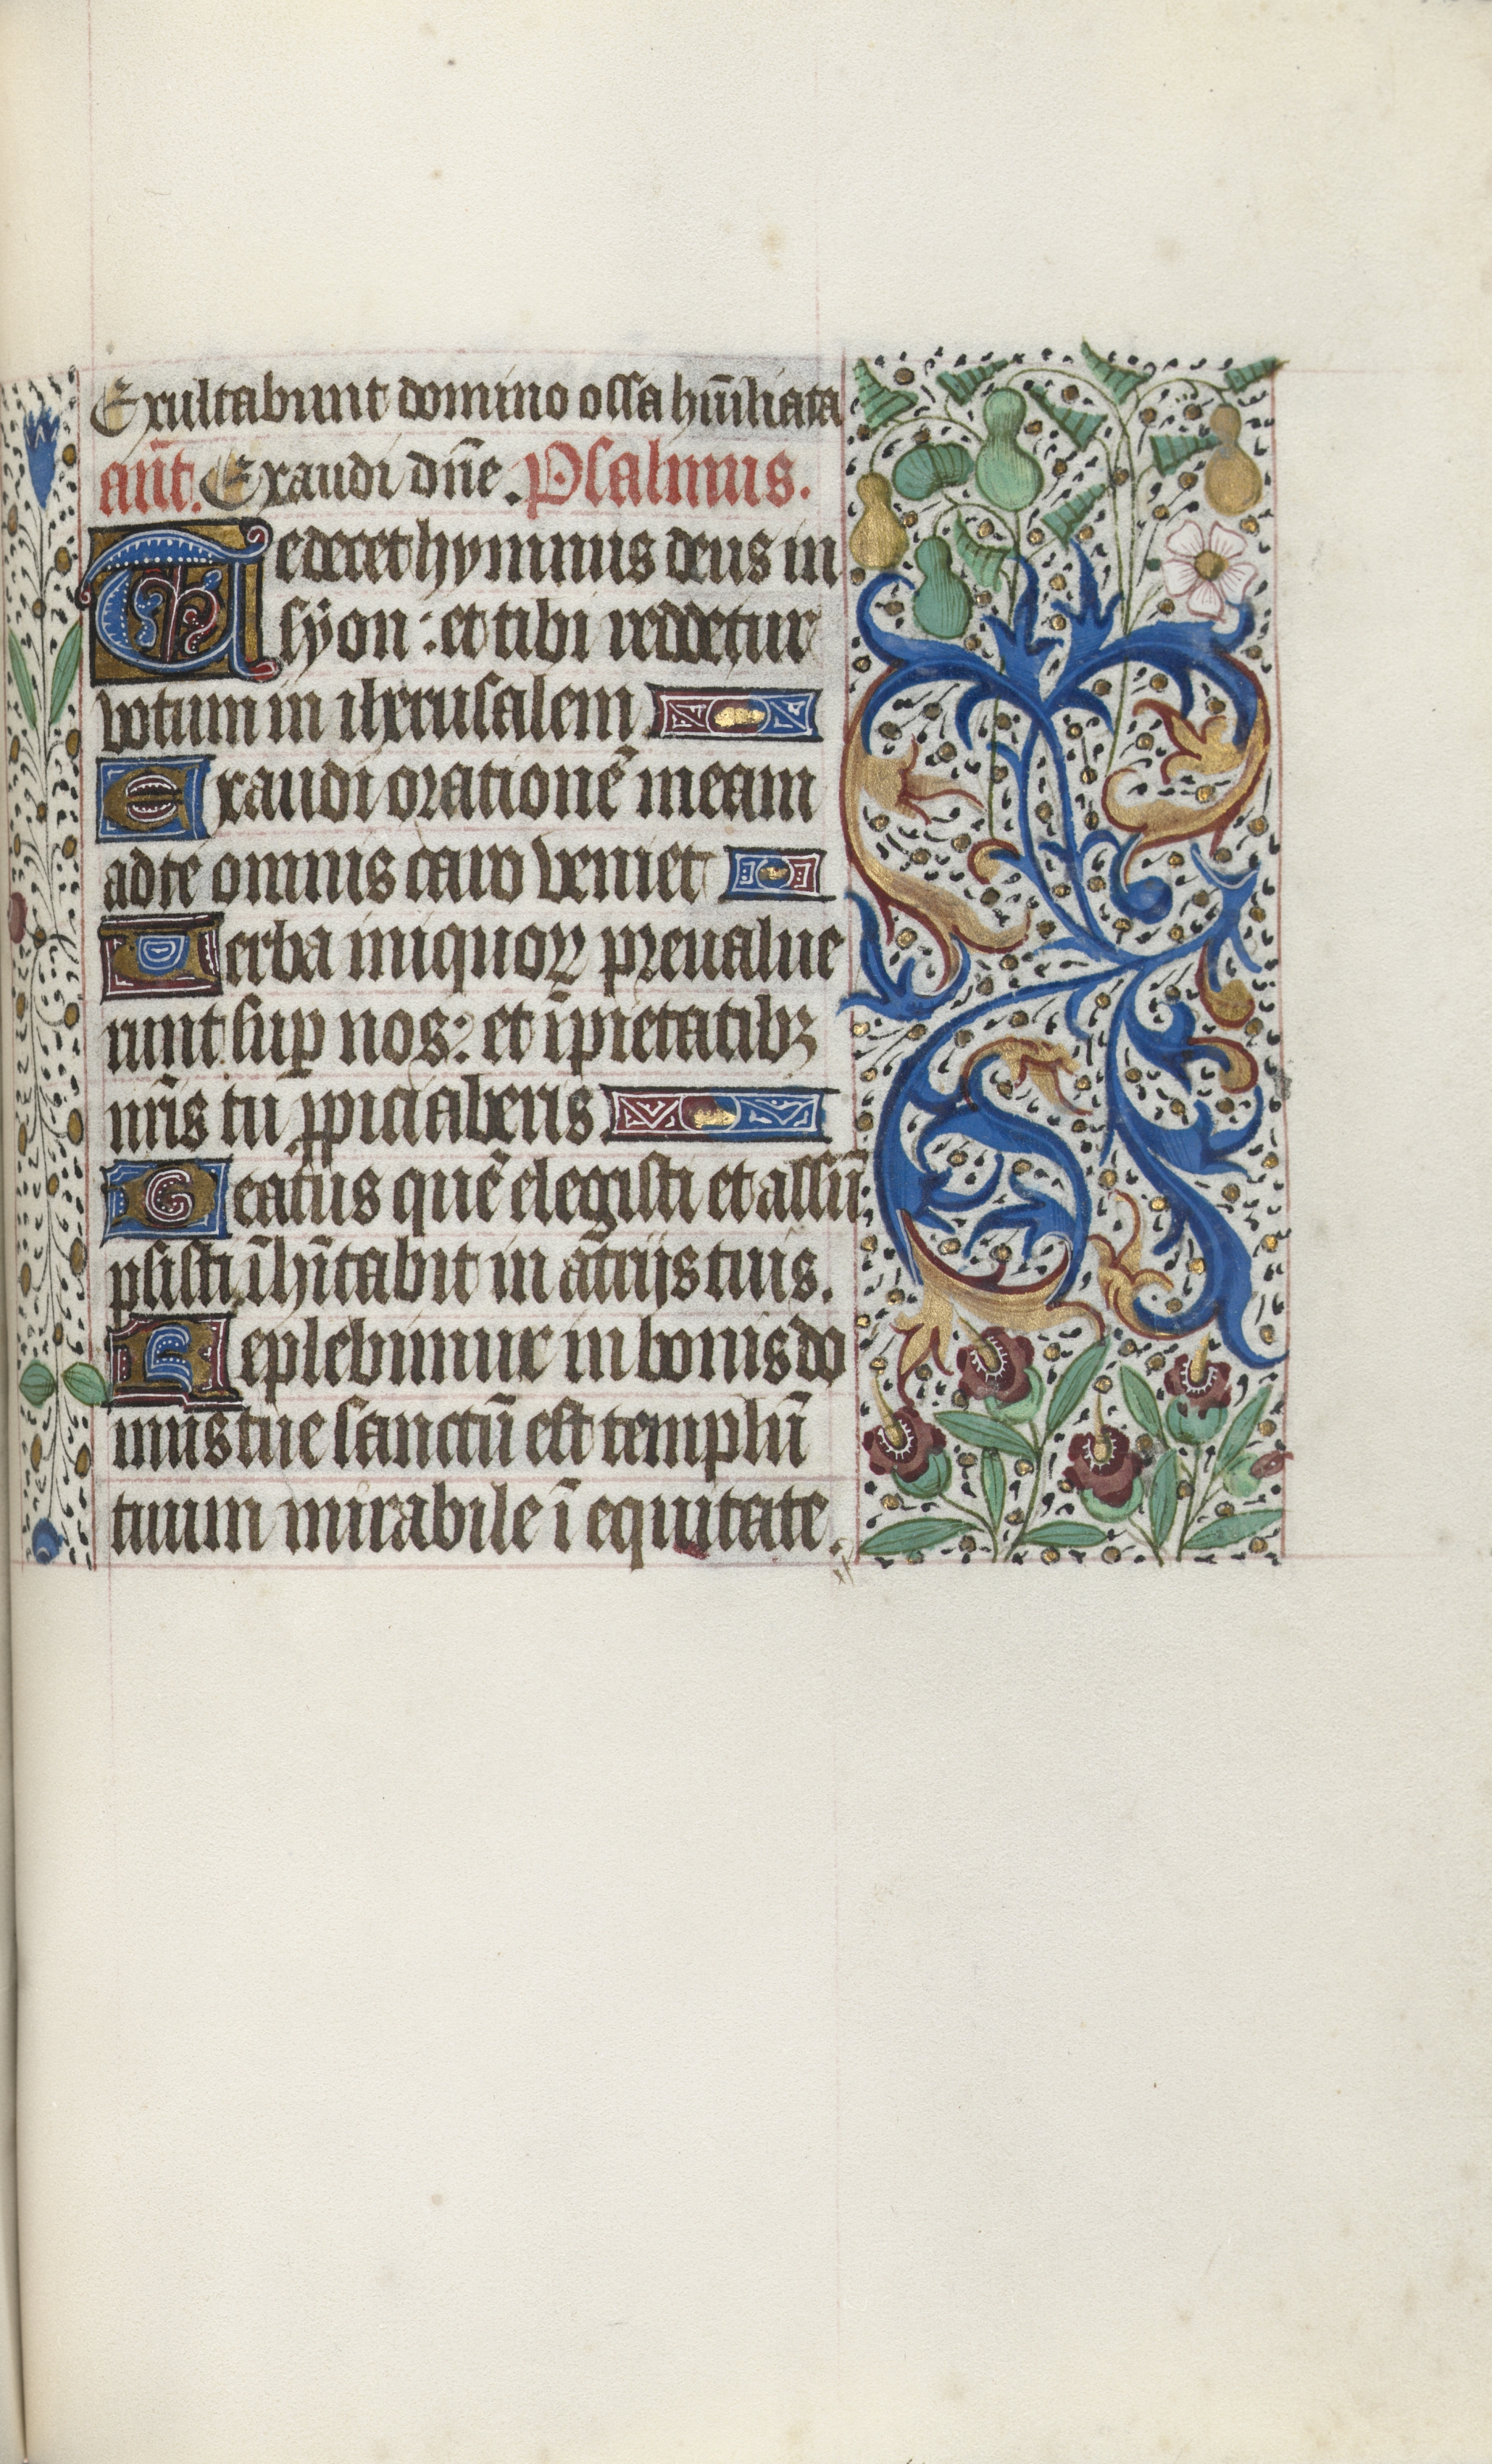 Exultabunt domino ossa hūiliata
añt. Exaudi dñe. Psalmus.
Te decet hymnus deus in
syon : et tibi reddetur
votum in iherusalem
Exaudi orationē meam
ad te omnis caro veniet
Verba iniquoꝝ preualue
runt suꝑ nos : et īpietatibꝫ
nr̄is tu ꝓpiciaberis
Beatus quē elegisti et assū
psisti īhītabit in atrijs tuis.
Replebimur in bonis do
mus tue sanctū est templū
tuum mirabile ī equitate.